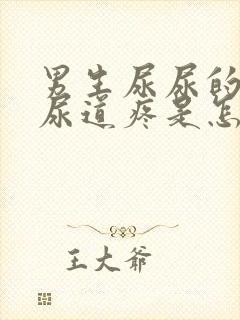 男生尿尿的
尿道疼是怎
王大爷